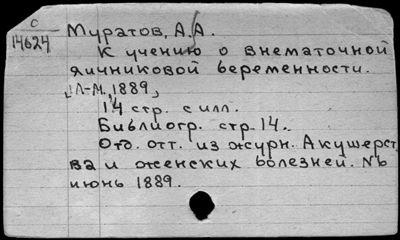 О
14624
Муратов, А.А.
К учению о внематочной
яичниковой беременности.
[Л-М, 1889]
14 стр. с илл.
Библиогр. стр. 14.
Отд. отт. из журн. Акушерст
ва и женских болезней. №6
июнь 1889.